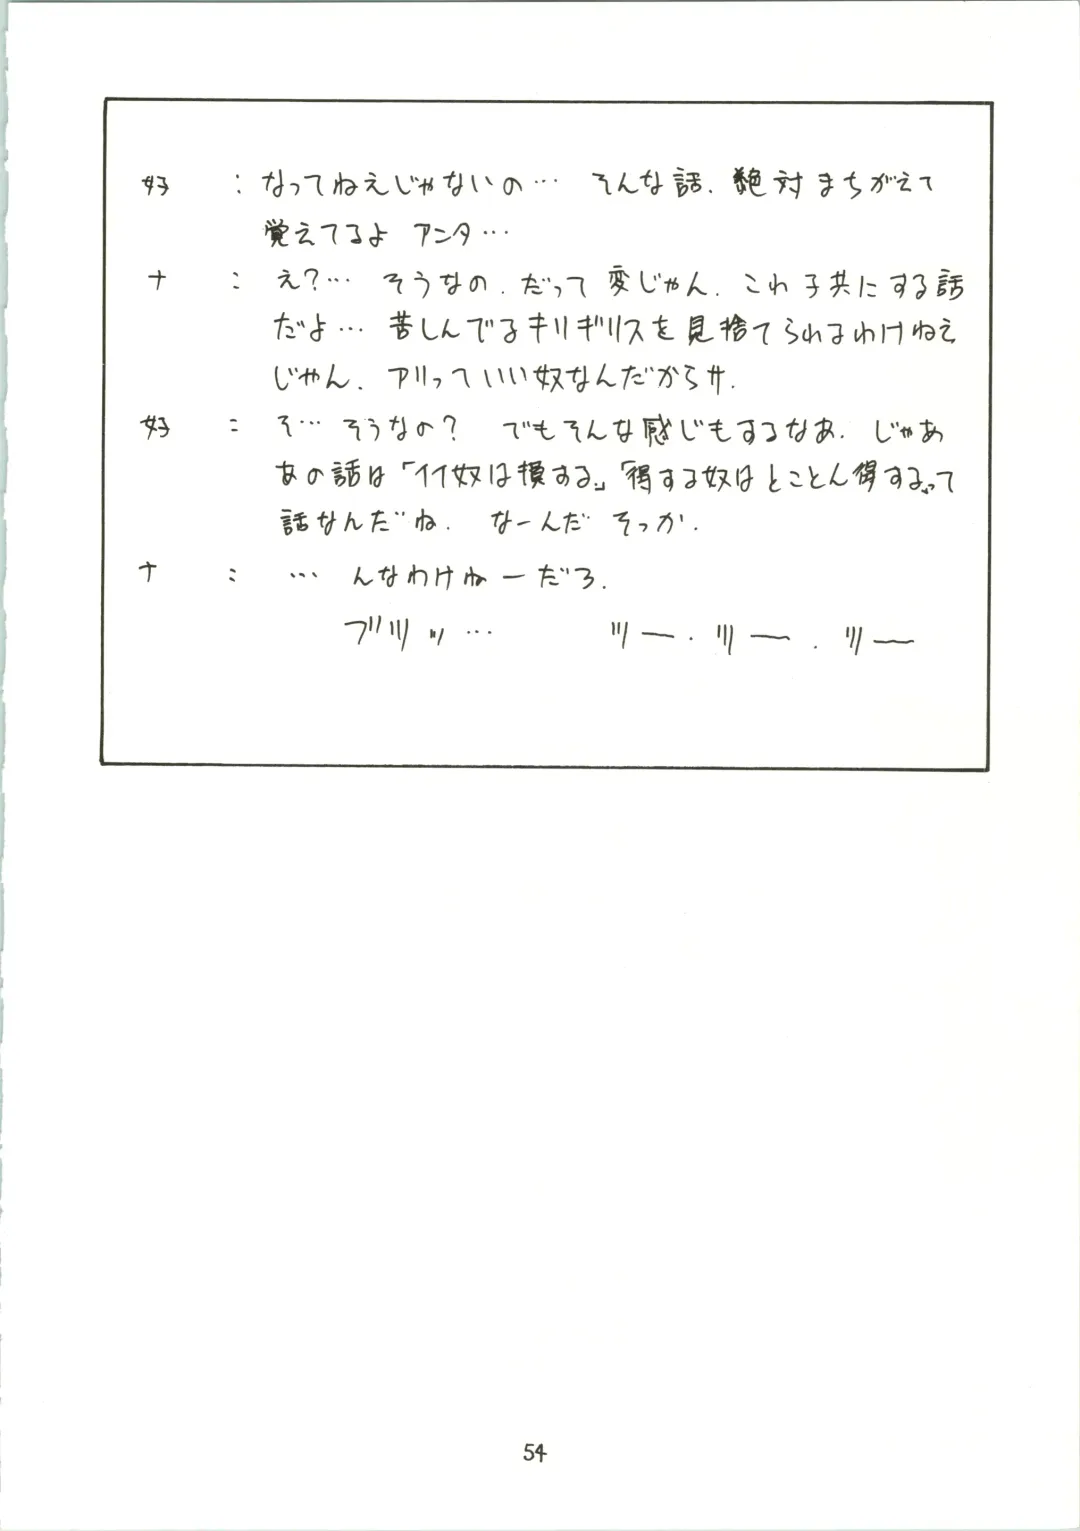 好 : なってねえじゃないの… そんな話、絶対まちがえて
覚えてるよ アンタ…
ナ : え?… そうなの。だって変じゃん。これ子共にする話
だよ… 苦しんでるキリギリスを見捨てられるわけねえ
じゃん。アリっていい奴なんだからサ。
好 : そ… そうなの? でもそんな感じもするなあ。じゃあ
あの話は「イイ奴は損する。」「得する奴はとことん得する。」って
話なんだね。なーんだ そっか。
ナ : … んなわけねーだろ。
ブツッッ… ツー。ツー。ツー
54